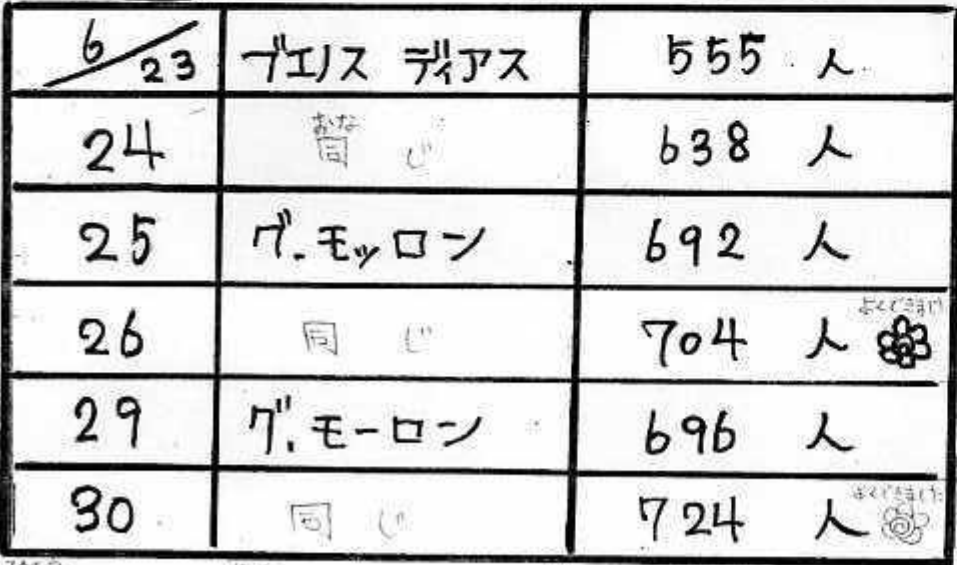 6/23 ブエノス ディアス 555 人
24 おな 同じ 638 人
25 グ.モッロン 692 人
26 同じ 704 人 よくできました
29 グ.モーロン 696 人
30 同じ 724 人 よくできました